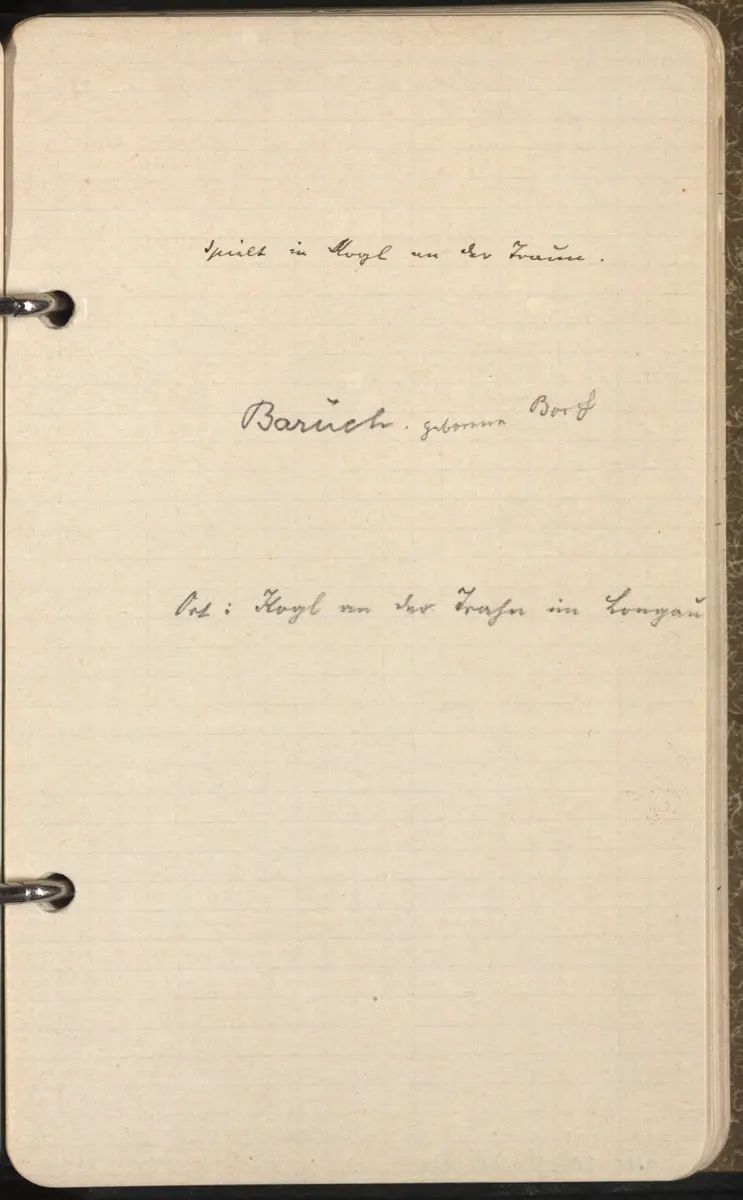 spielt in Kogl an der Traun.
Baruch. geborene
Ort: Kogl an der Trahn im Longau